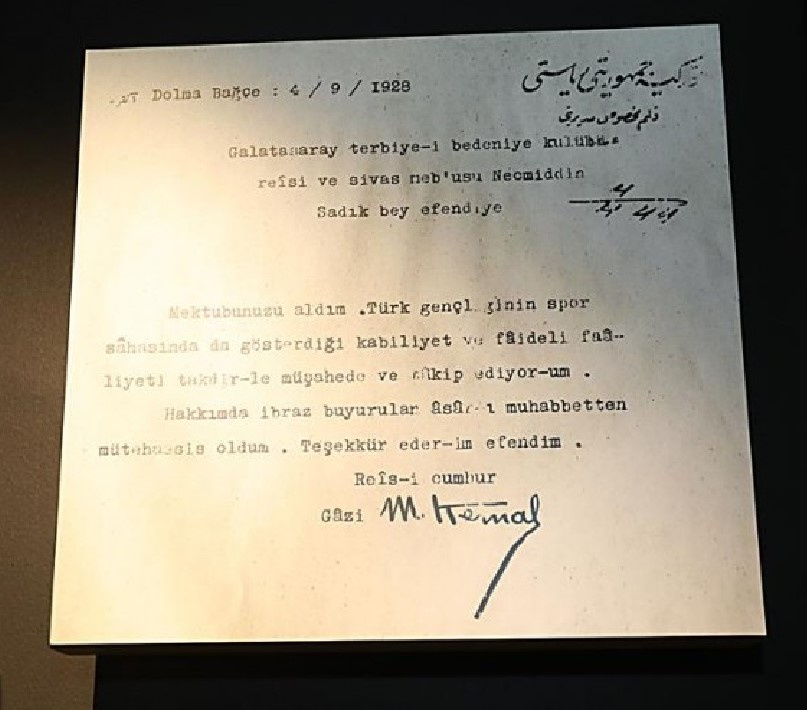 توركيه جمهوريتى رياستى
قلم مخصوص مديريتى
Dolma Bağçe : 4 / 9 / 1928
Galatasaray terbiye-i bedeniye kulübü
reîsi ve sivas meb'usu Necmiddin
Sadık bey efendiye
Mektubunuzu aldım .Türk gençliğinin spor
sâhasinda da gösterdiği kabiliyet ve fâideli faâ-
liyeti takdir-le müşahede ve tâkip ediyor-um .
Hakkımda ibraz buyurular âsâr-ı muhabbetten
mütehassis oldum . Teşekkür eder-im efendim .
Reîs-i cumhur
Gâzi M. Kemal